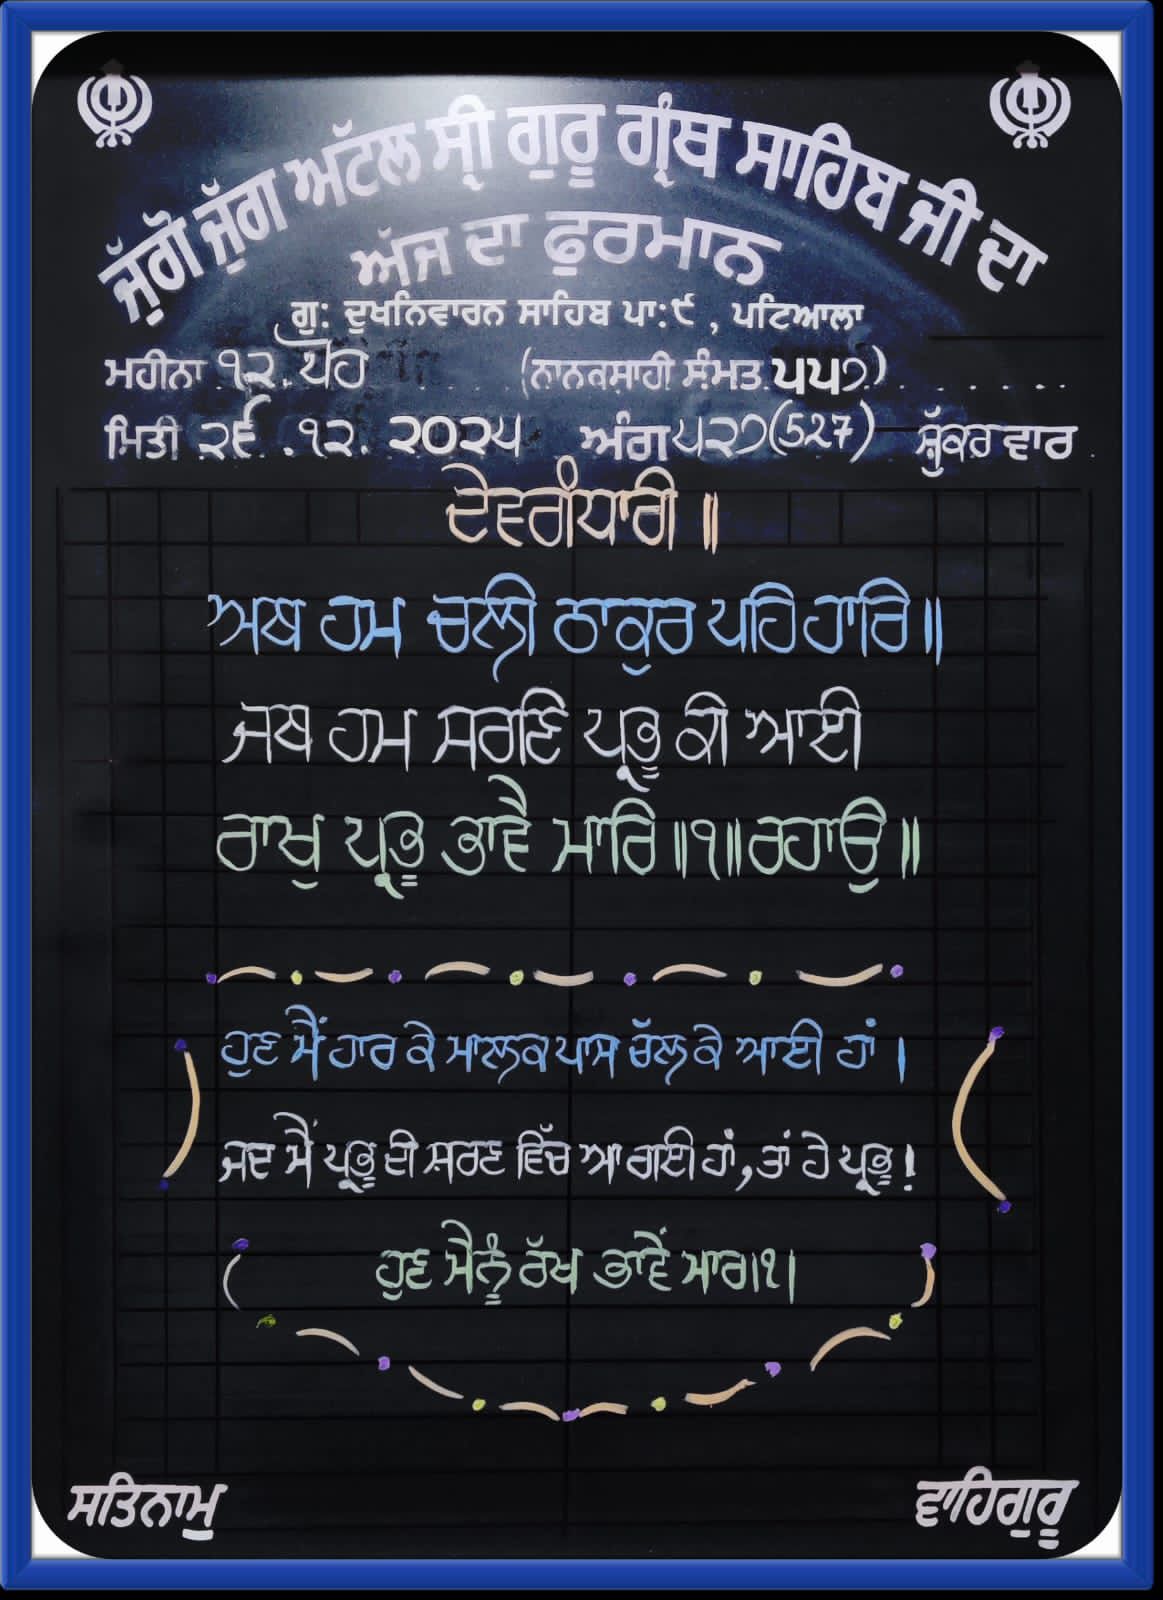 ਜੁੱਗੋ ਜੁੱਗ ਅਟੱਲ ਸ੍ਰੀ ਗੁਰੂ ਗ੍ਰੰਥ ਸਾਹਿਬ ਜੀ ਦਾ
ਅੱਜ ਦਾ ਫੁਰਮਾਨ
ਗੁ: ਦੁਖਨਿਵਾਰਨ ਸਾਹਿਬ ਪਾ:੯, ਪਟਿਆਲਾ
ਮਹੀਨਾ ੧੨ ਪੋਹ (ਨਾਨਕਸਾਹੀ ਸੰਮਤ ੫੫੭)
ਮਿਤੀ ੨੬.੧੨.੨੦੨੫ ਅੰਗ ੫੨੭(527) ਸ਼ੁੱਕਰਵਾਰ
ਦੇਵਗੰਧਾਰੀ ॥
ਅਬ ਹਮ ਚਲੀ ਠਾਕੁਰ ਪਹਿ ਹਾਰਿ ॥
ਜਬ ਹਮ ਸਰਣਿ ਪ੍ਰਭੂ ਕੀ ਆਈ
ਰਾਖੁ ਪ੍ਰਭੂ ਭਾਵੈ ਮਾਰਿ ॥੧॥ ਰਹਾਉ ॥
ਹੁਣ ਮੈਂ ਹਾਰ ਕੇ ਮਾਲਕ ਪਾਸ ਚੱਲ ਕੇ ਆਈ ਹਾਂ ।
ਜਦ ਮੈਂ ਪ੍ਰਭੂ ਦੀ ਸ਼ਰਣ ਵਿੱਚ ਆ ਗਈ ਹਾਂ, ਤਾਂ ਹੇ ਪ੍ਰਭੂ !
ਹੁਣ ਮੈਨੂੰ ਰੱਖ ਭਾਵੇਂ ਮਾਰ।੧।
ਸਤਿਨਾਮੁ ਵਾਹਿਗੁਰੂ